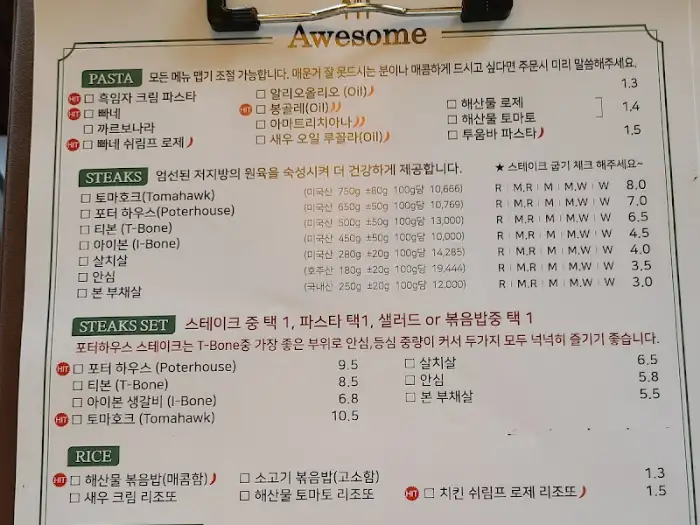 Awesome
PASTA 모든 메뉴 맵기 조절 가능합니다. 매운거 잘 못드시는 분이나 매콤하게 드시고 싶다면 주문시 미리 말씀해주세요.
HIT □ 흑임자 크림 파스타 □ 알리오올리오 (Oil) 1.3
HIT □ 빠네 HIT □ 봉골레(Oil) □ 해산물 로제 1.4
□ 까르보나라 □ 아마트리치아나 □ 해산물 토마토
HIT □ 빠네 쉬림프 로제 □ 새우 오일 루꼴라(Oil) □ 투움바 파스타 1.5
STEAKS 엄선된 저지방의 원육을 숙성시켜 더 건강하게 제공합니다. ★ 스테이크 굽기 체크 해주세요~
□ 토마호크(Tomahawk) (미국산 750g ±80g 100g당 10,666) R | M.R | M | M.W | W 8.0
□ 포터 하우스(Poterhouse) (미국산 650g ±50g 100g당 10,769) R | M.R | M | M.W | W 7.0
□ 티본 (T-Bone) (미국산 500g ±50g 100g당 13,000) R | M.R | M | M.W | W 6.5
□ 아이본 (I-Bone) (미국산 450g ±50g 100g당 10,000) R | M.R | M | M.W | W 4.5
□ 살치살 (미국산 280g ±20g 100g당 14,285) R | M.R | M | M.W | W 4.0
□ 안심 (호주산 180g ±20g 100g당 19,444) R | M.R | M | M.W | W 3.5
□ 본 부채살 (국내산 250g ±20g 100g당 12,000) R | M.R | M | M.W | W 3.0
STEAKS SET 스테이크 중 택 1, 파스타 택1, 샐러드 or 볶음밥중 택 1
포터하우스 스테이크는 T-Bone중 가장 좋은 부위로 안심,등심 중량이 커서 두가지 모두 넉넉히 즐기기 좋습니다.
HIT □ 포터 하우스 (Poterhouse) 9.5 □ 살치살 6.5
□ 티본 (T-Bone) 8.5 □ 안심 5.8
□ 아이본 생갈비 (I-Bone) 6.8 □ 본 부채살 5.5
HIT □ 토마호크 (Tomahawk) 10.5
RICE
HIT □ 해산물 볶음밥(매콤함) □ 소고기 볶음밥(고소함) 1.3
□ 새우 크림 리조또 □ 해산물 토마토 리조또 HIT □ 치킨 쉬림프 로제 리조또 1.5